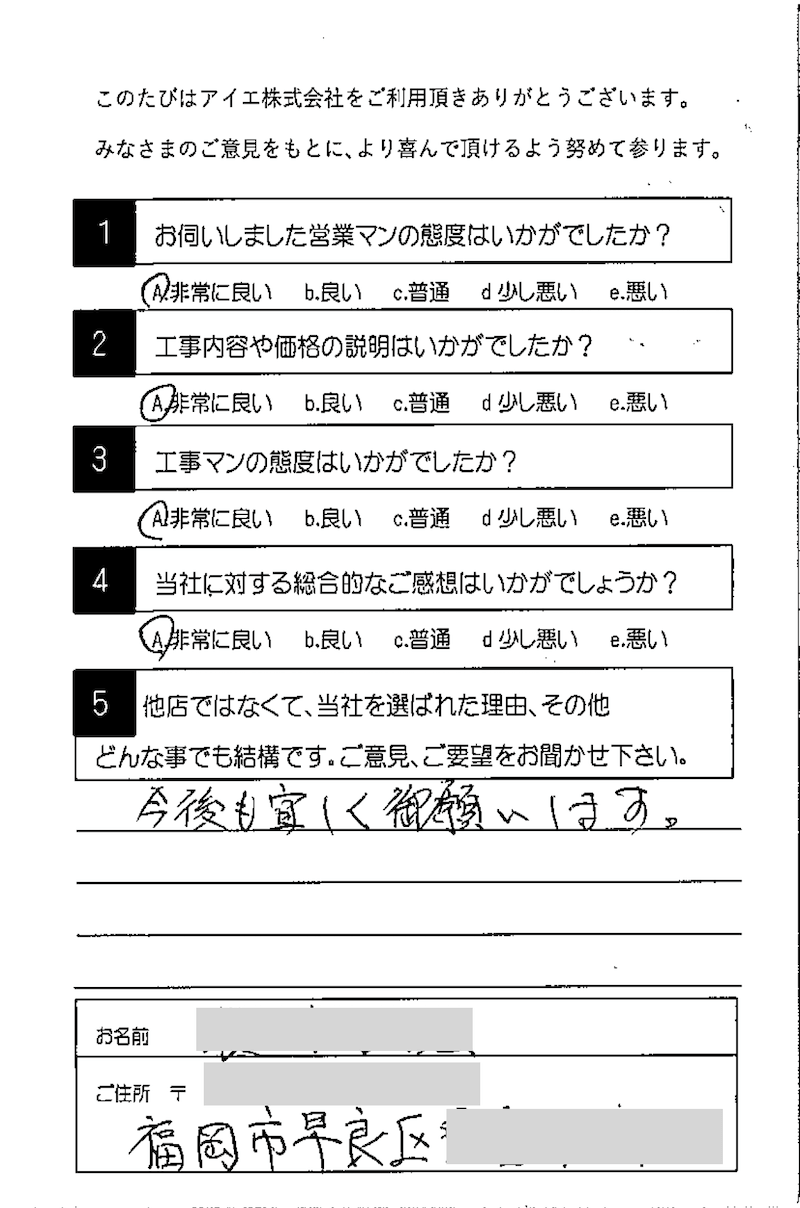 このたびはアイエ株式会社をご利用頂きありがとうございます。
みなさまのご意見をもとに、より喜んで頂けるよう努めて参ります。
1 お伺いしました営業マンの態度はいかがでしたか？
A.非常に良い b.良い c.普通 d 少し悪い e.悪い
2 工事内容や価格の説明はいかがでしたか？
A.非常に良い b.良い c.普通 d 少し悪い e.悪い
3 工事マンの態度はいかがでしたか？
A.非常に良い b.良い c.普通 d 少し悪い e.悪い
4 当社に対する総合的なご感想はいかがでしょうか？
A.非常に良い b.良い c.普通 d 少し悪い e.悪い
5 他店ではなくて、当社を選ばれた理由、その他
どんな事でも結構です。ご意見、ご要望をお聞かせ下さい。
今後も宜しく御願いします。
お名前
ご住所 〒
福岡市早良区